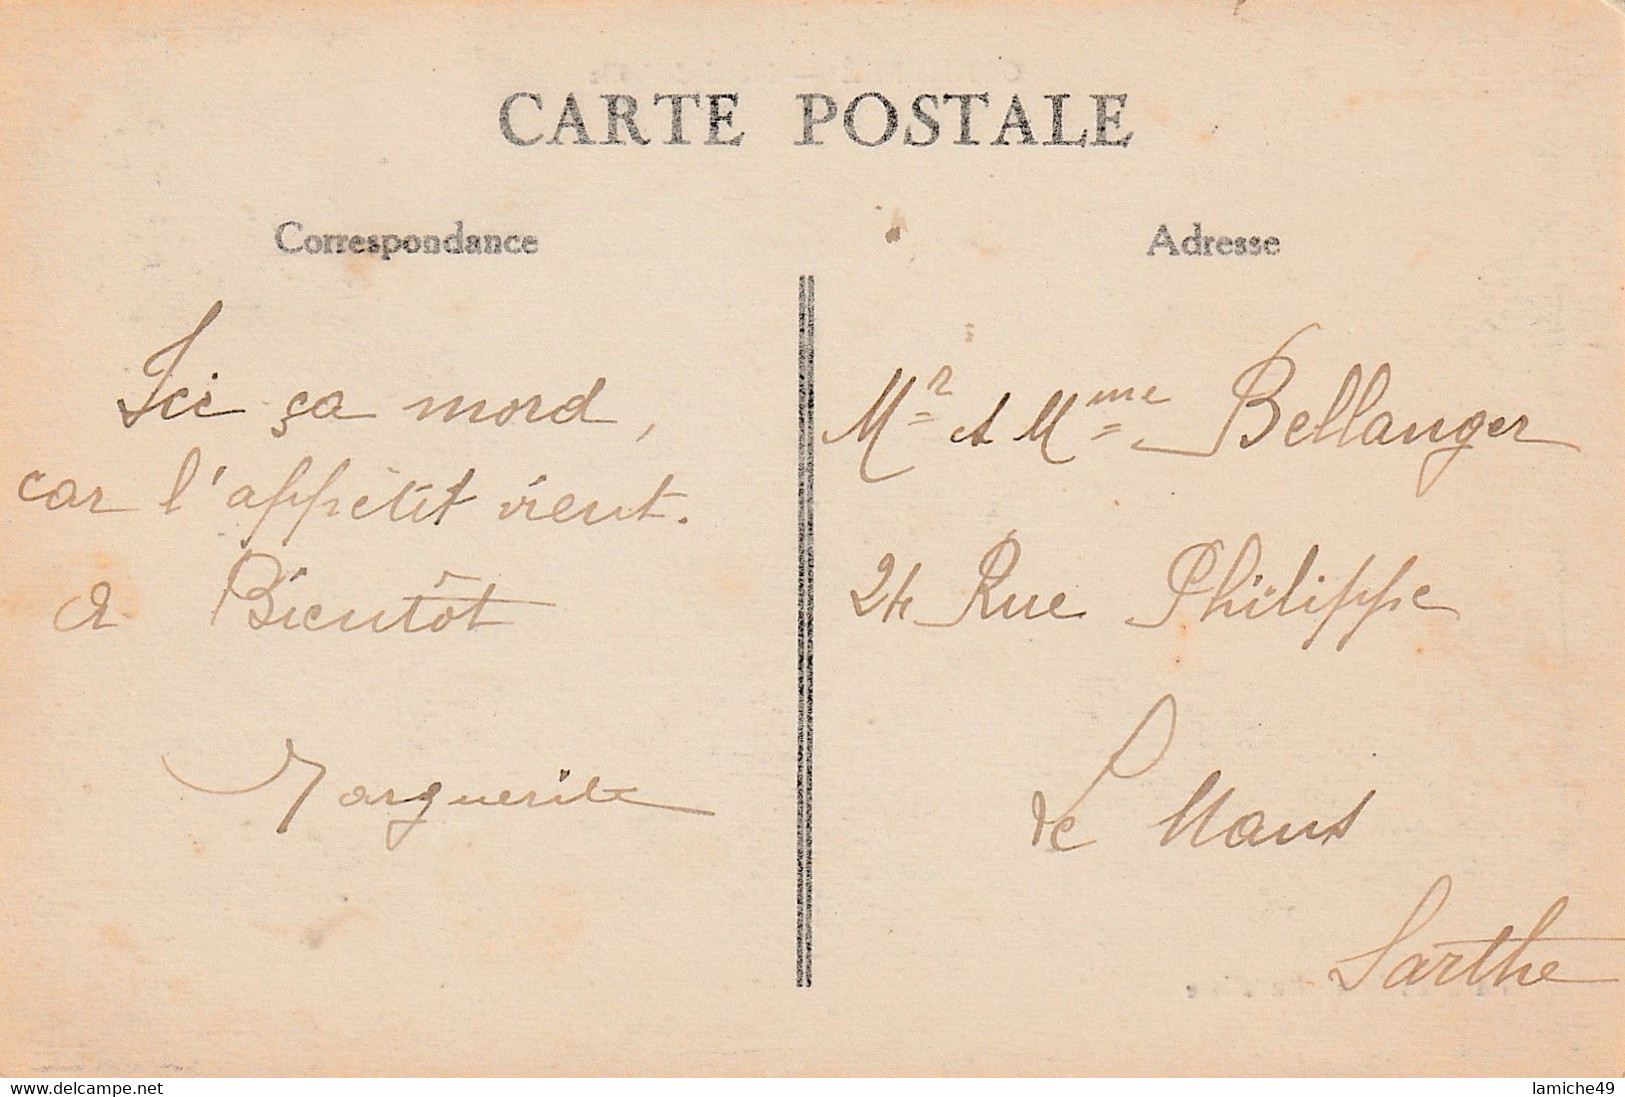 CARTE POSTALE
Correspondance
Ici ça mord,
car l'appétit vient.
a Bientôt
Marguerite
Adresse
Mr et Mme Bellanger
24 Rue Philippe
Le Mans
Sarthe
www.delcampe.net
lamiche49